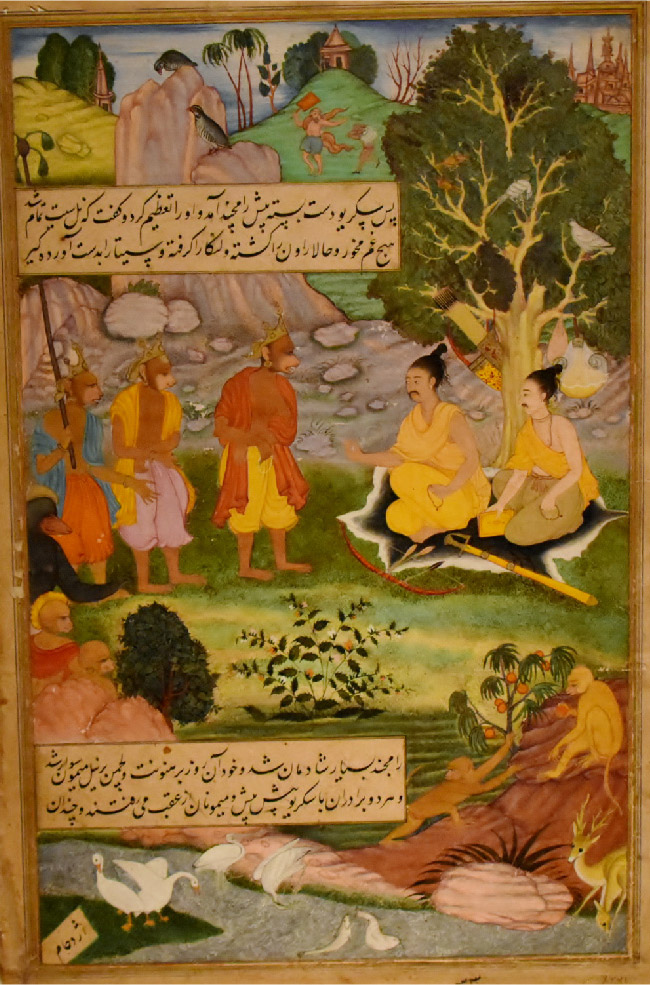 پس سکریو دست بسته پیش رامچند آمد و او را تعظیم کرد و گفت که پل سیت تمام شد
هیچ غم مخور و حالا راون را کشته و لنکا را گرفته و سیتا را بدست آورده گیر
رامچند بسیار شادمان شد و خود آن روز بر هنونت و لچمن بر نیل میمون سوار شد
و هر دو برادران با سکریو پیش پیش و میمونان از عقب می رفتند و چندان